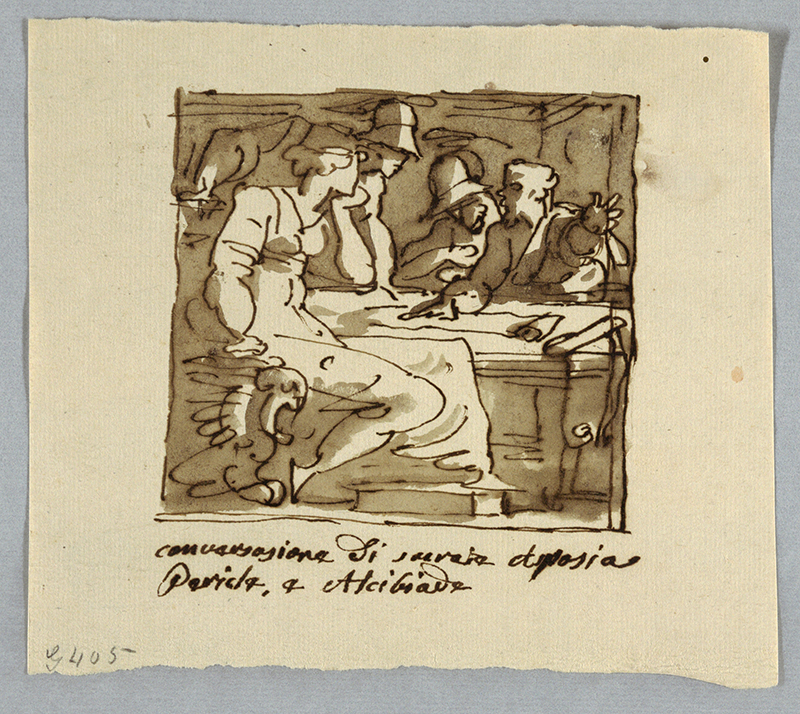 conversasione Di socrate Aspasia
Pericle, e Alcibiade
G405